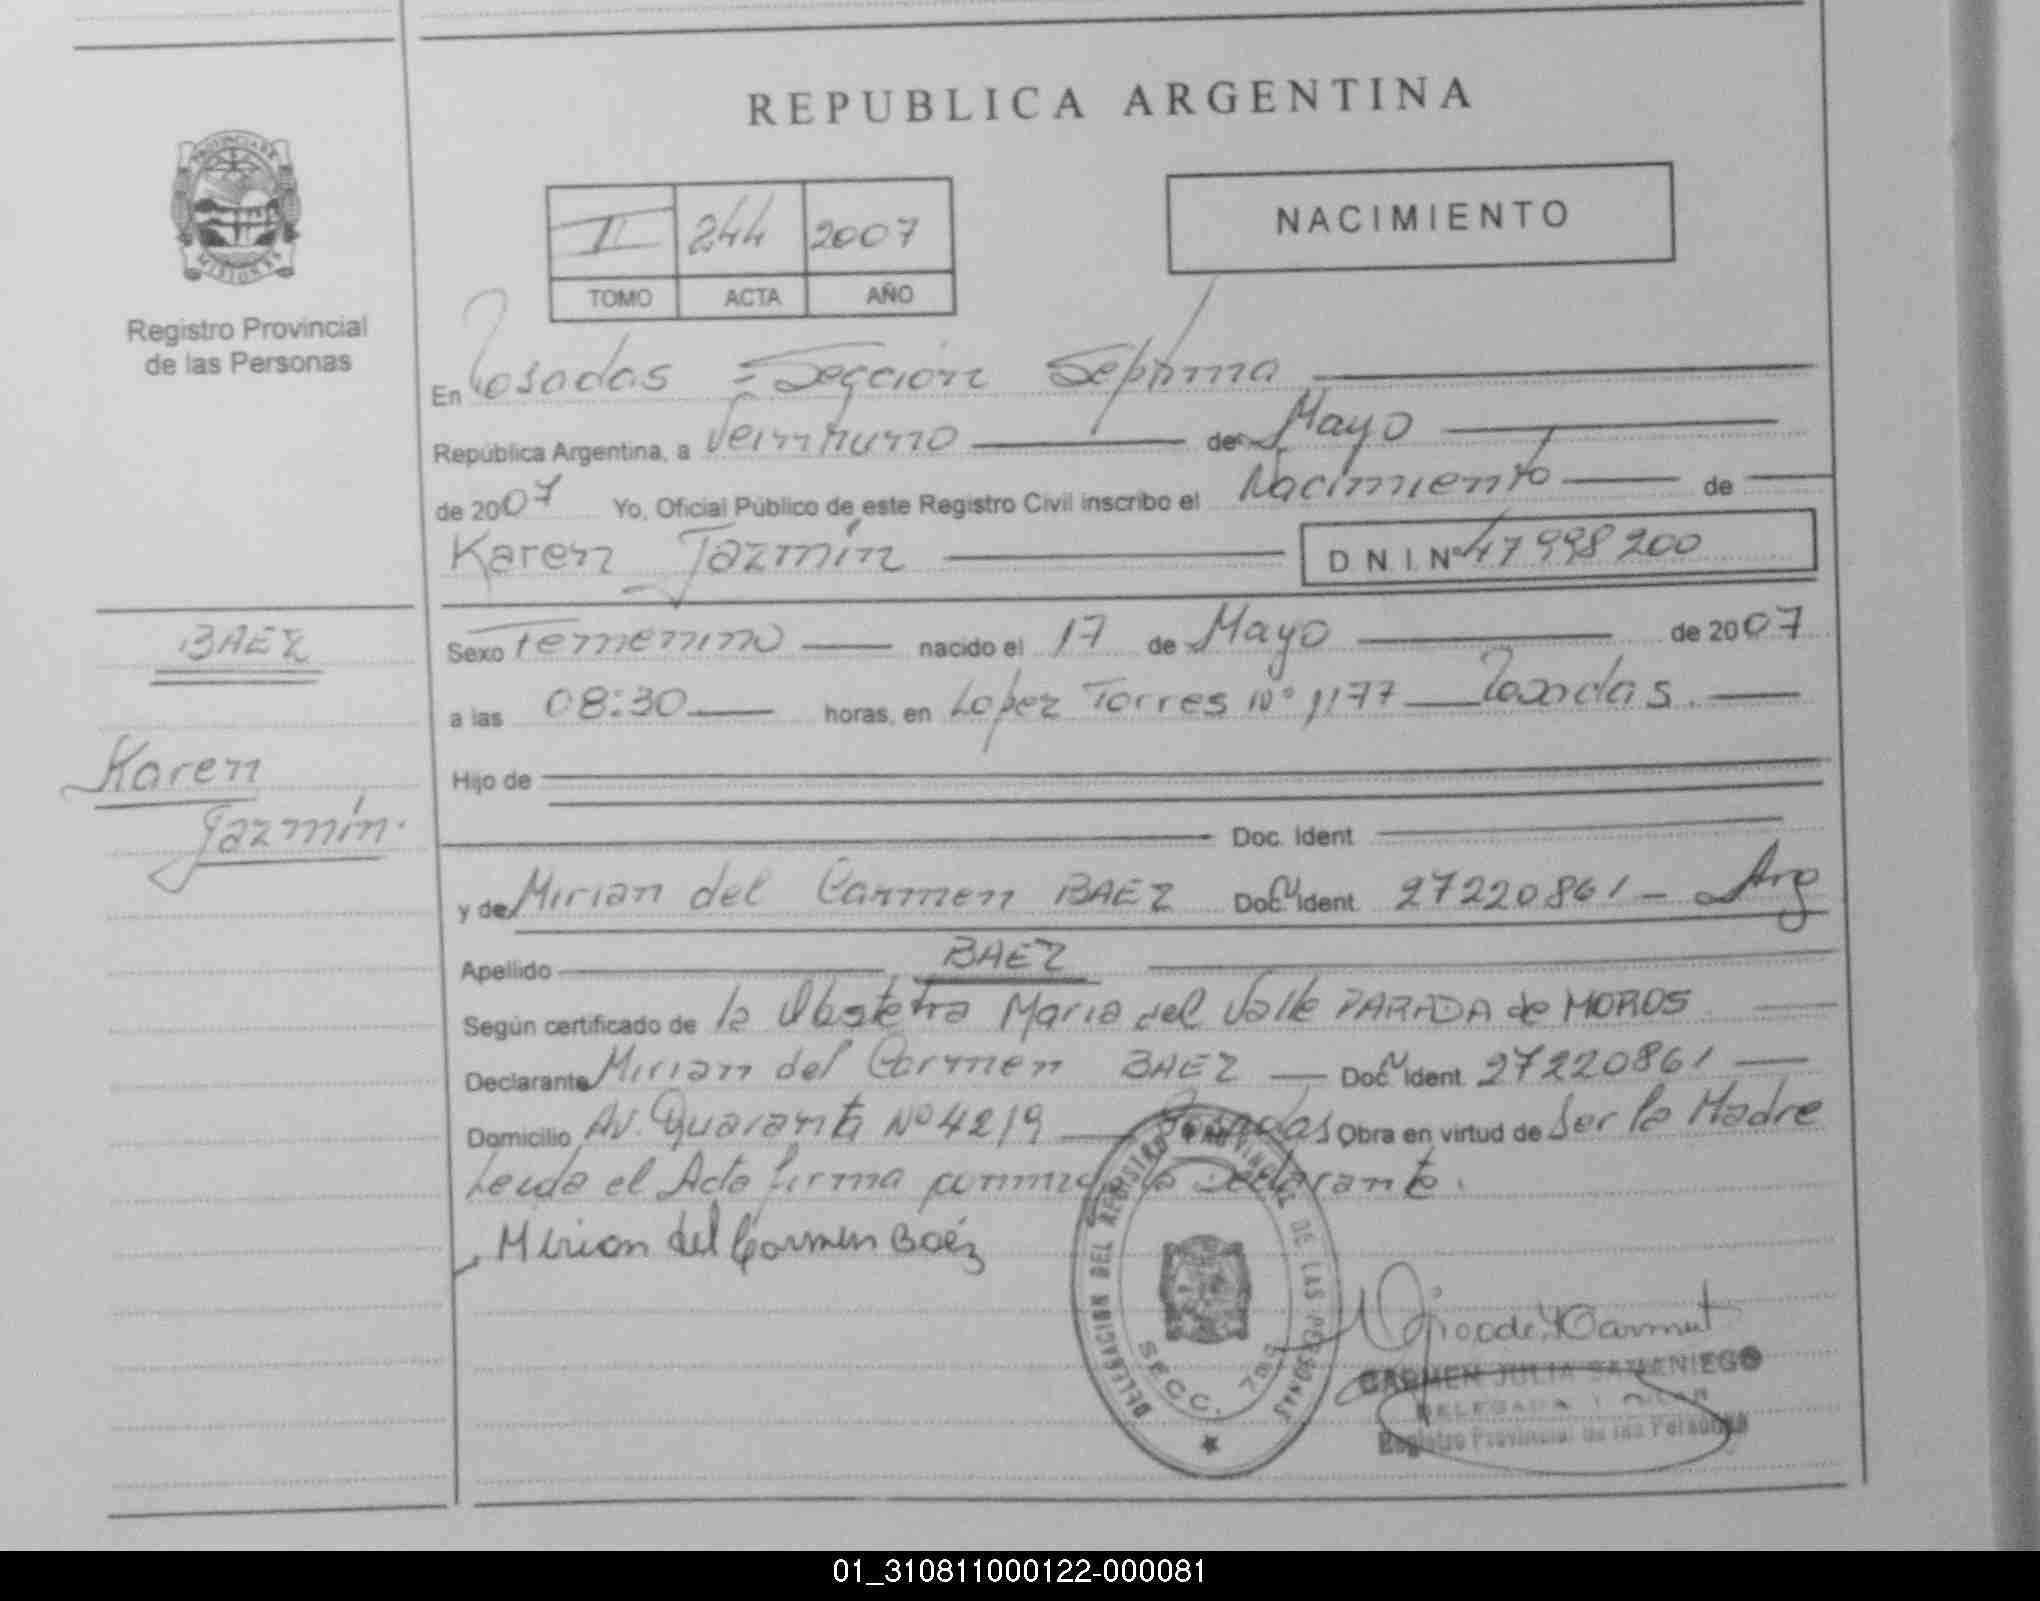 REPUBLICA ARGENTINA
PROVINCIA DE
MISIONES
Registro Provincial
de las Personas
II 244 2007
TOMO ACTA AÑO
NACIMIENTO
En Posadas = Sección Séptima
República Argentina, a Veintiuno de Mayo
de 2007 Yo, Oficial Público de este Registro Civil inscribo el Nacimiento de
Karen Jazmín DNI Nº 47998200
BAEZ
Karen
Jazmín.
Sexo Femenino nacido el 17 de Mayo de 2007
a las 08:30 horas, en Lopez Torres Nº 1177 Posadas.
Hijo de
Doc. Ident
y de Mirian del Carmen BAEZ Doc. Ident 27220861 - Arg
Apellido BAEZ
Según certificado de la Obstetra Maria del Valle PARADA de MOROS
Declarante Mirian del Carmen BAEZ Doc. Ident. 27220861
Domicilio Av. Quaranta Nº 4219 Posadas Obra en virtud de Ser la Madre
Leída el Acta firma conmigo la Declarante.
Mirian del Carmen Baéz
DELEGACION DEL REGISTRO PROVINCIAL DE LAS PERSONAS
SECC. 7ma
CARMEN JULIA SAMANIEGO
DELEGADA
Registro Provincial de las Personas
01_310811000122-000081